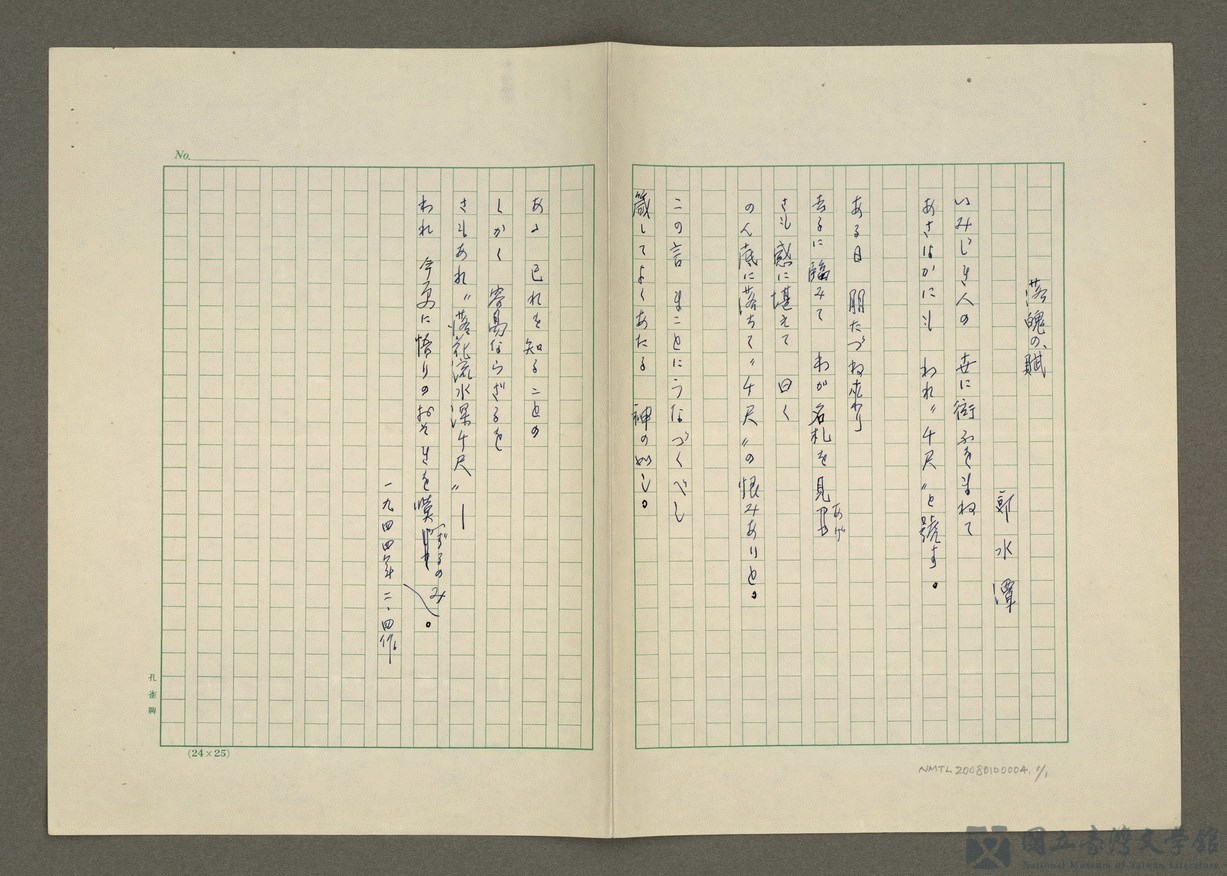 落魄の賦
郭水潭
いみじき人の 世に衒ふをまねて
あさはかにも われ〃千尺〃と號す。
ある日 朋たづね来り
去るに臨みて わが名札を見あげ
さも感に堪えて 曰く
のん底に落ちて〃千尺〃の恨みありと。
この言 まことにうなづくべし
箴してよくあたる 神の如し。
あゝ 已れを知ることの
しかく 容易ならざるを
さもあれ〃落花流水深千尺〃—
われ 今更に悟りのおそきを嘆ずるのみ。
一九四四年二、四作
No.
孔雀牌
(24×25)
NMTL20080100004. 1/1
國立臺灣文學館
National Museum of Taiwan Literature